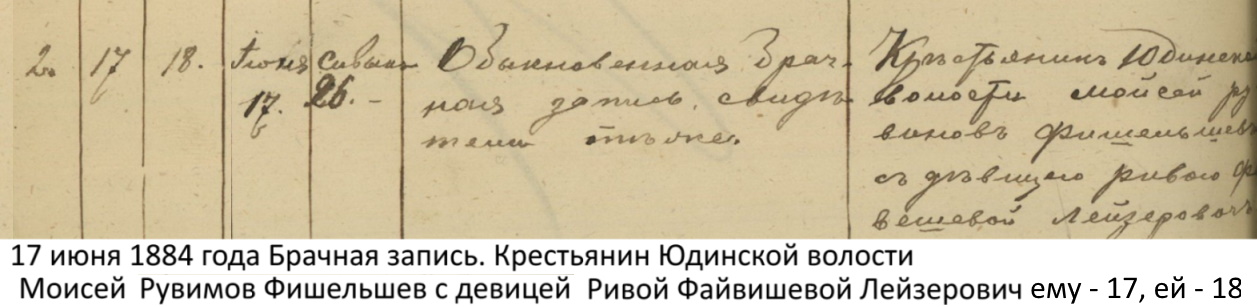 2. 17 18. Іюня Сивана Обыкновенная Брач-
17. 26. - ная запись. Свидѣ-
тели тѣ же.
Крестьянинъ Юдинской
волости Мойсей Ру
виновъ Фишельшевъ
съ дѣвицею Ривою Фа
вешевой Лейзеровичъ
17 июня 1884 года Брачная запись. Крестьянин Юдинской волости
Моисей Рувимов Фишельшев с девицей Ривой Файвишевой Лейзерович ему - 17, ей - 18